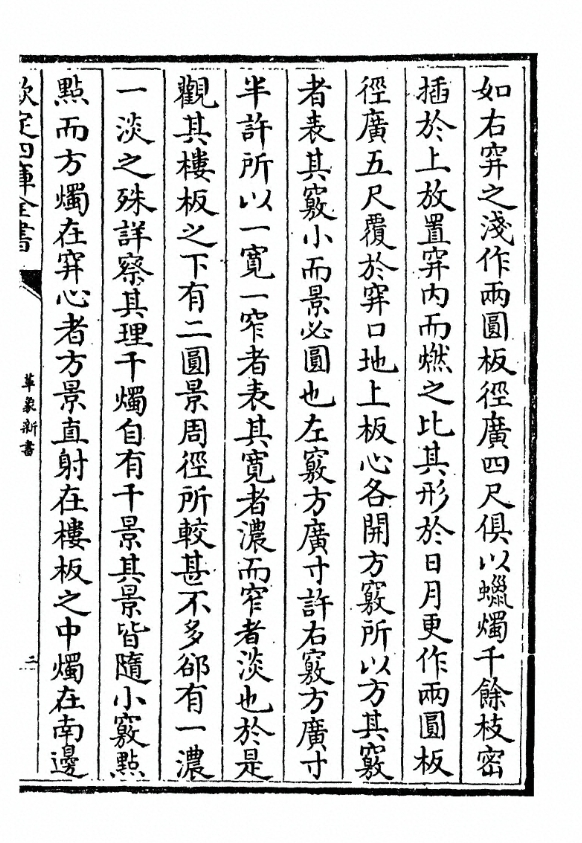 如右穽之淺作兩圓板徑廣四尺俱以蠟燭千餘枝密
插於上放置穽內而燃之比其形於日月更作兩圓板
徑廣五尺覆於穽口地上板心各開方竅所以方其竅
者表其竅小而景必圓也左竅方廣寸許右竅方廣寸
半許所以一寛一窄者表其寛者濃而窄者淡也於是
觀其樓板之下有二圓景周徑所較甚不多郤有一濃
一淡之殊詳察其理千燭自有千景其景皆隨小竅點
點而方燭在穽心者方景直射在樓板之中燭在南邊
欽定四庫全書
革象新書
二